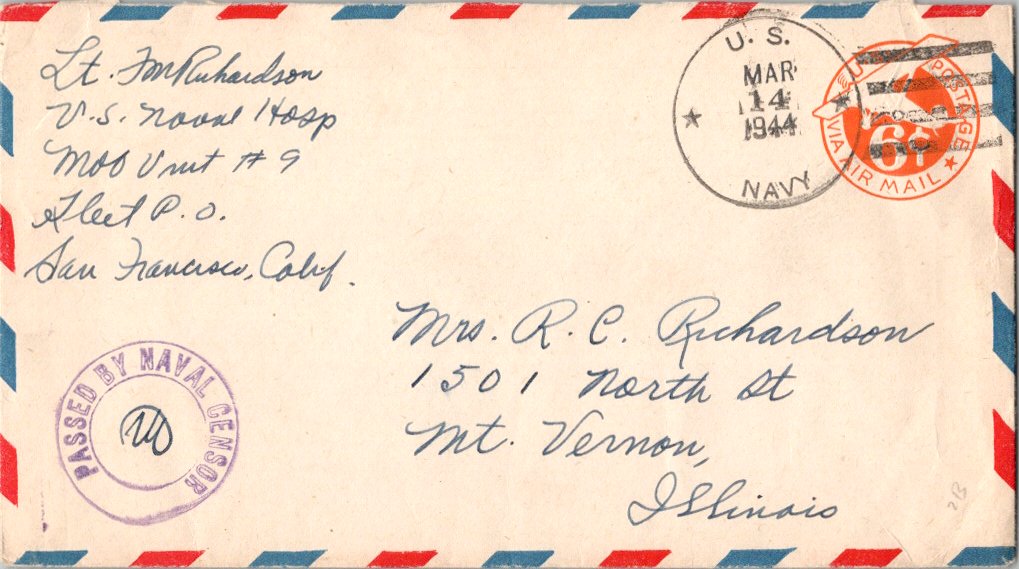 Lt. F M Richardson
U.S. Naval Hosp
MOB Unit # 9
Fleet P.O.
San Francisco, Calif.
U. S.
MAR
14
1944
NAVY
U.S. POSTAGE
6¢
VIA AIR MAIL
Mrs. R. C. Richardson
1501 North St
Mt. Vernon,
Illinois
PASSED BY NAVAL CENSOR
2B